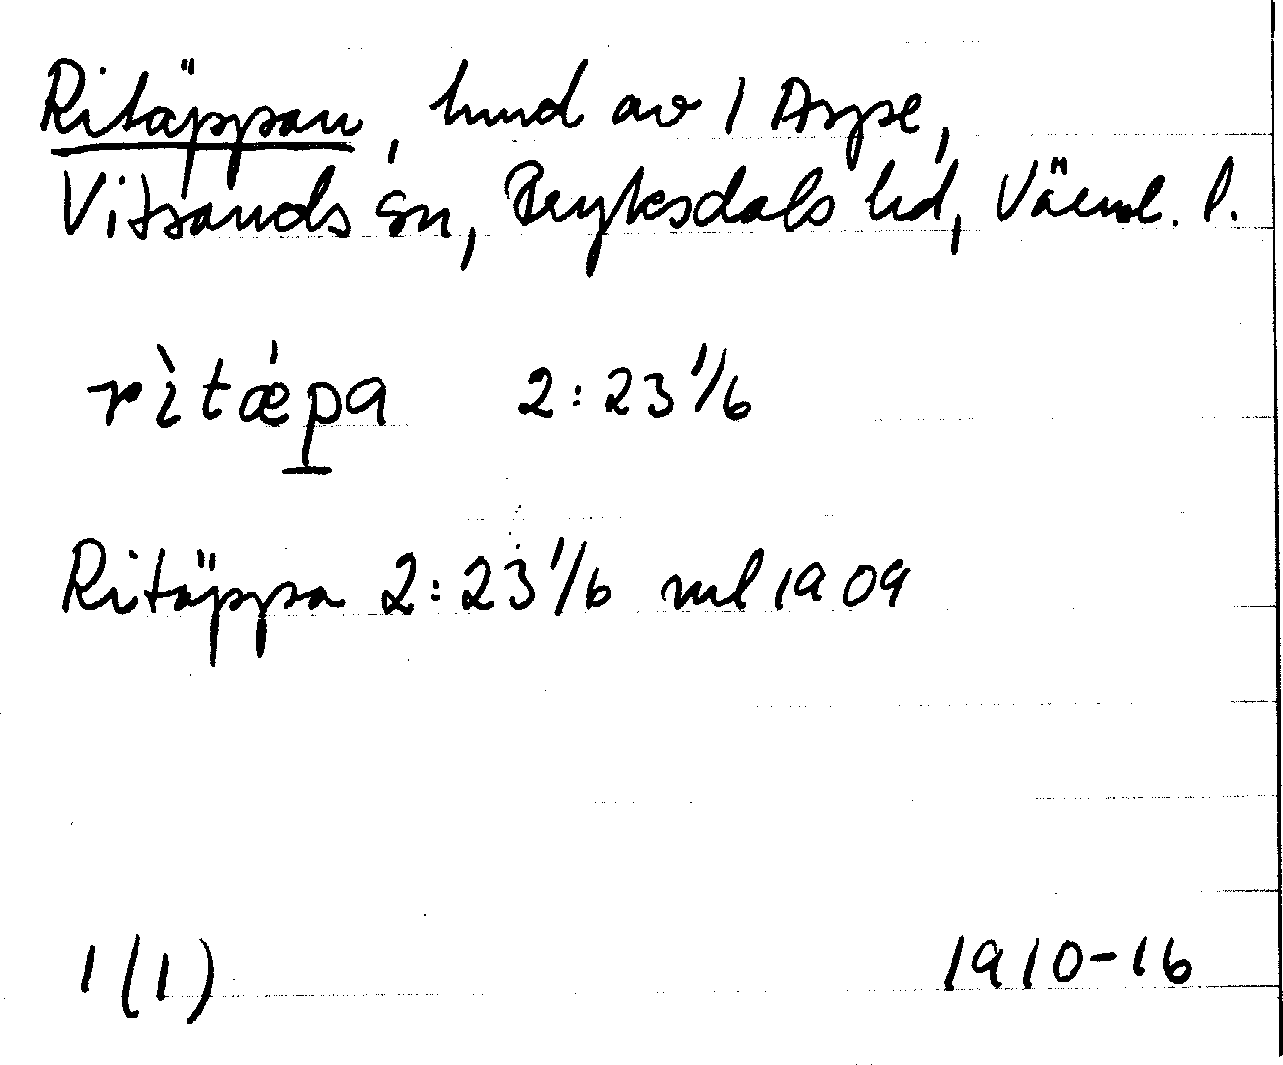 Ritäppan, hmd av 1 Aspe,
Vitsands sn, Fryksdals hd, Värml. l.
rìtǽpa 2:23 1/6
Ritäppa 2:23 1/6 ml 1909
1 (1) 1910-16